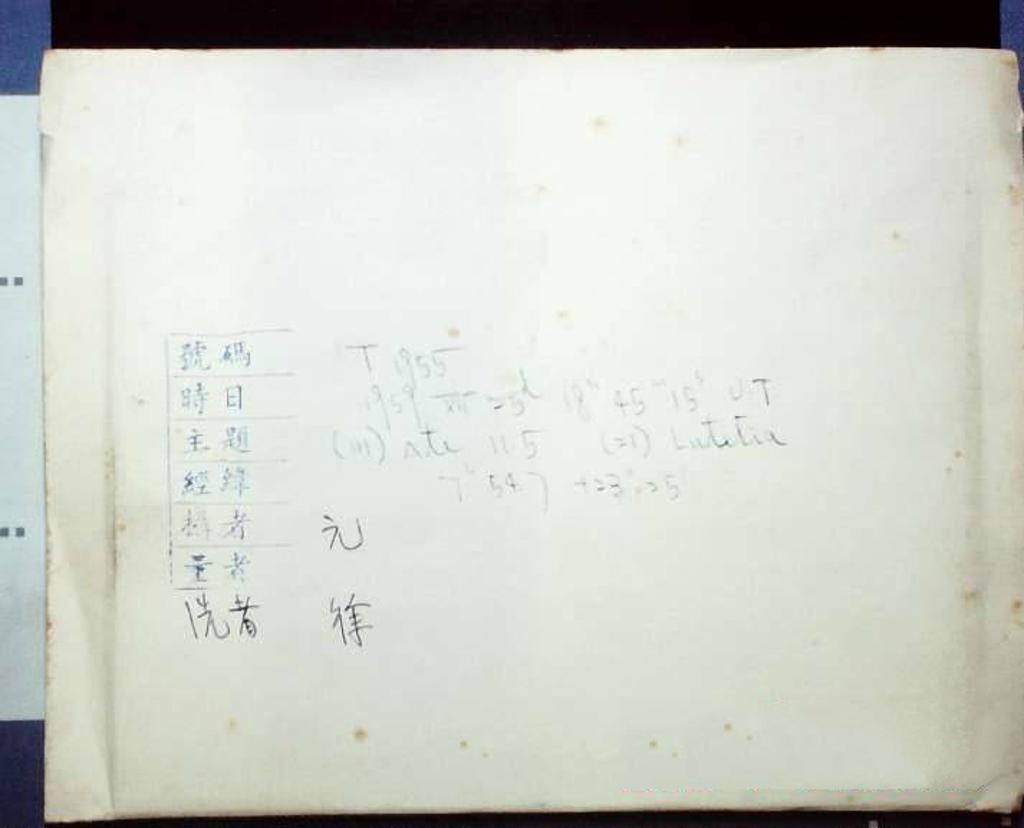 號碼 T 1955
時日 1959 XII 25ᵈ 18ʰ 45ᵐ 15ˢ U T
主題 (111) Ate 11.5 (21) Lutetia
經緯 7ʰ 54.7 +23°.25
攝者 元
量者
洗者 徐